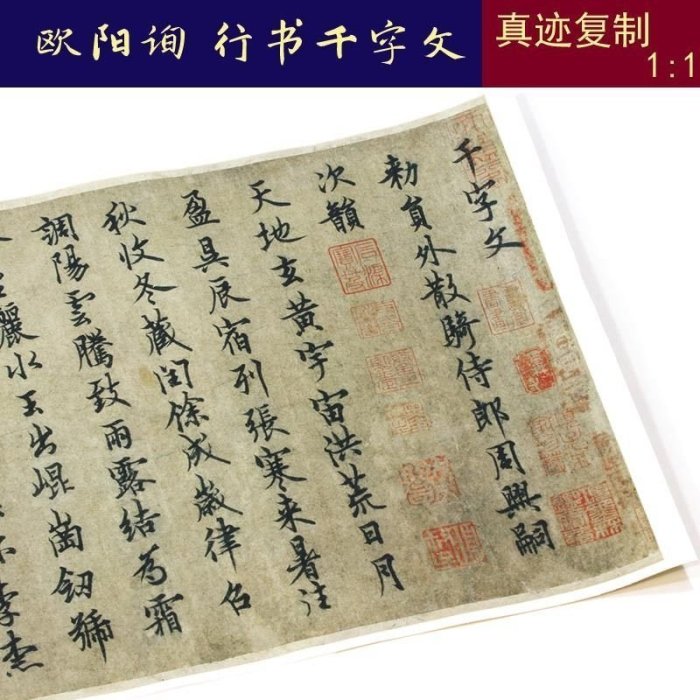 欧阳询 行书千字文
真迹复制
1:1
千字文
勑員外散騎侍郎周興嗣
次韻
天地玄黃宇宙洪荒日月
盈昃辰宿列張寒来暑往
秋收冬藏閏餘成歲律呂
調陽雲騰致雨露結為霜
生麗水玉出崐崗劒號
李柰